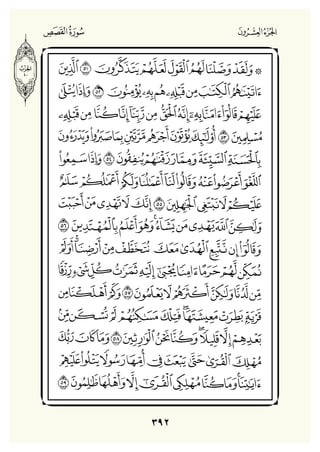 الجُزْءُ العِشْرُونَ
سُورَةُ القَصَصِ
الحزب ٤٠
۞ وَلَقَدْ وَصَّلْنَا لَهُمُ ٱلْقَوْلَ لَعَلَّهُمْ يَتَذَكَّرُونَ ٥١ ٱلَّذِينَ
ءَاتَيْنَٰهُمُ ٱلْكِتَٰبَ مِن قَبْلِهِۦ هُم بِهِۦ يُؤْمِنُونَ ٥٢ وَإِذَا يُتْلَىٰ
عَلَيْهِمْ قَالُوٓا۟ ءَامَنَّا بِهِۦٓ إِنَّهُ ٱلْحَقُّ مِن رَّبِّنَآ إِنَّا كُنَّا مِن قَبْلِهِۦ
مُسْلِمِينَ ٥٣ أُو۟لَٰٓئِكَ يُؤْتَوْنَ أَجْرَهُم مَّرَّتَيْنِ بِمَا صَبَرُوا۟ وَيَدْرَءُونَ
بِٱلْحَسَنَةِ ٱلسَّيِّئَةَ وَمِمَّا رَزَقْنَٰهُمْ يُنفِقُونَ ٥٤ وَإِذَا سَمِعُوا۟
ٱللَّغْوَ أَعْرَضُوا۟ عَنْهُ وَقَالُوا۟ لَنَآ أَعْمَٰلُنَا وَلَكُمْ أَعْمَٰلُكُمْ سَلَٰمٌ
عَلَيْكُمْ لَا نَبْتَغِى ٱلْجَٰهِلِينَ ٥٥ إِنَّكَ لَا تَهْدِى مَنْ أَحْبَبْتَ
وَلَٰكِنَّ ٱللَّهَ يَهْدِى مَن يَشَآءُ ۚ وَهُوَ أَعْلَمُ بِٱلْمُهْتَدِينَ ٥٦
وَقَالُوٓا۟ إِن نَّتَّبِعِ ٱلْهُدَىٰ مَعَكَ نُتَخَطَّفْ مِنْ أَرْضِنَآ ۚ أَوَلَمْ
نُمَكِّن لَّهُمْ حَرَمًا ءَامِنًا يُجْبَىٰٓ إِلَيْهِ ثَمَرَٰتُ كُلِّ شَىْءٍ رِّزْقًا
مِّن لَّدُنَّا وَلَٰكِنَّ أَكْثَرَهُمْ لَا يَعْلَمُونَ ٥٧ وَكَمْ أَهْلَكْنَا مِن
قَرْيَةٍۭ بَطِرَتْ مَعِيشَتَهَا ۖ فَتِلْكَ مَسَٰكِنُهُمْ لَمْ تُسْكَن مِّنۢ
بَعْدِهِمْ إِلَّا قَلِيلًا ۖ وَكُنَّا نَحْنُ ٱلْوَٰرِثِينَ ٥٨ وَمَا كَانَ رَبُّكَ
مُهْلِكَ ٱلْقُرَىٰ حَتَّىٰ يَبْعَثَ فِىٓ أُمِّهَا رَسُولًا يَتْلُوا۟ عَلَيْهِمْ
ءَايَٰتِنَا ۚ وَمَا كُنَّا مُهْلِكِى ٱلْقُرَىٰٓ إِلَّا وَأَهْلُهَا ظَٰلِمُونَ ٥٩
٣٩٢